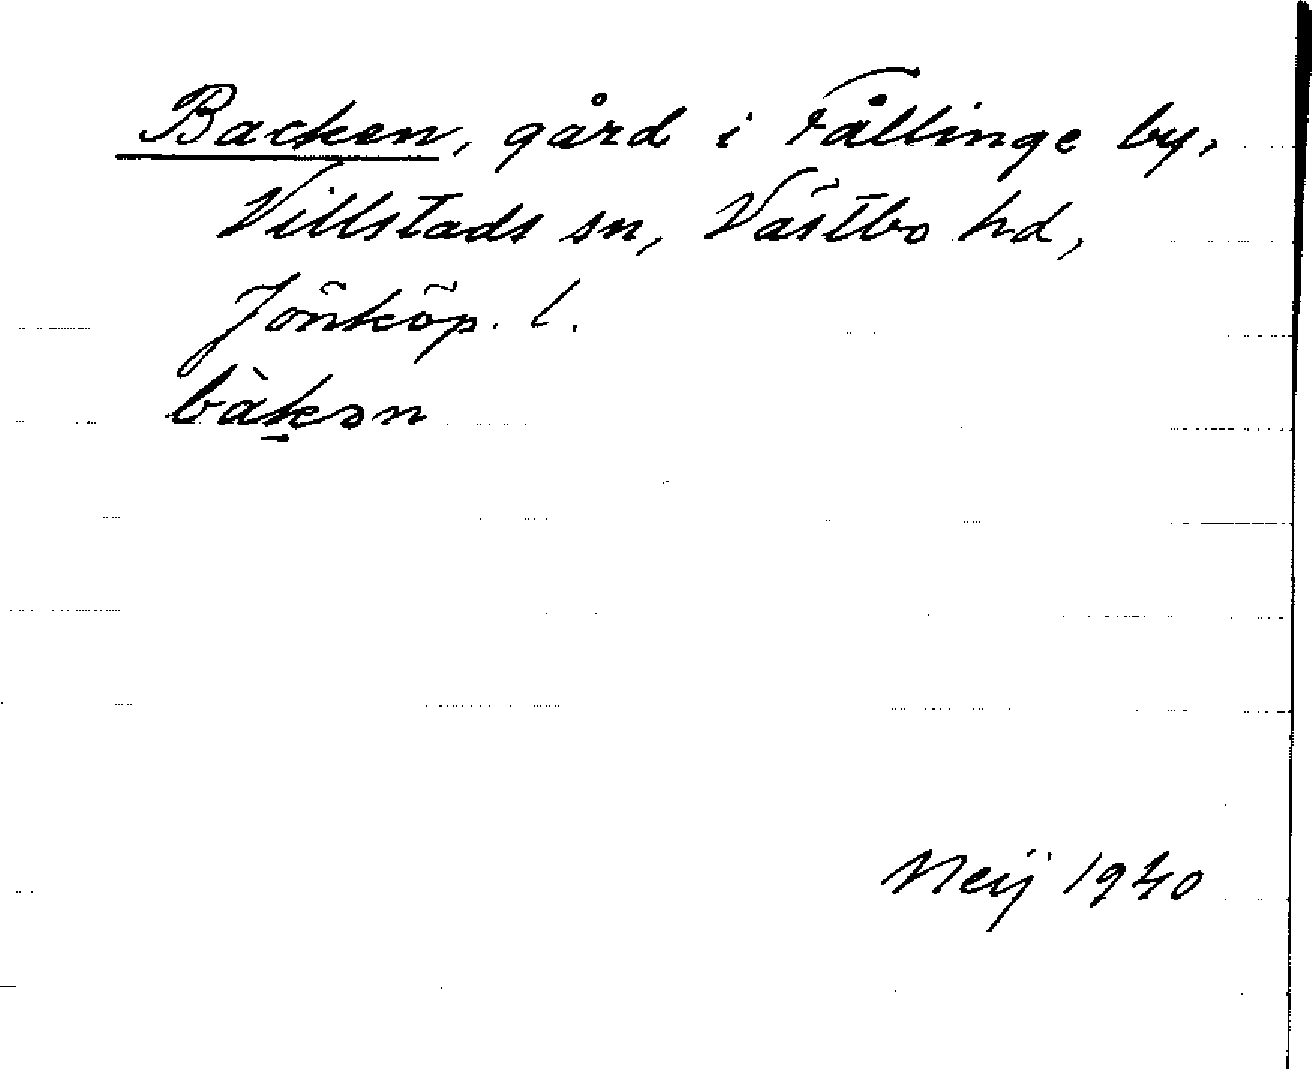 Backen, gård i Fållinge by,
Villstads sn, Västbo hd,
Jönköp. l.
bàk̠ən
Neij 1940